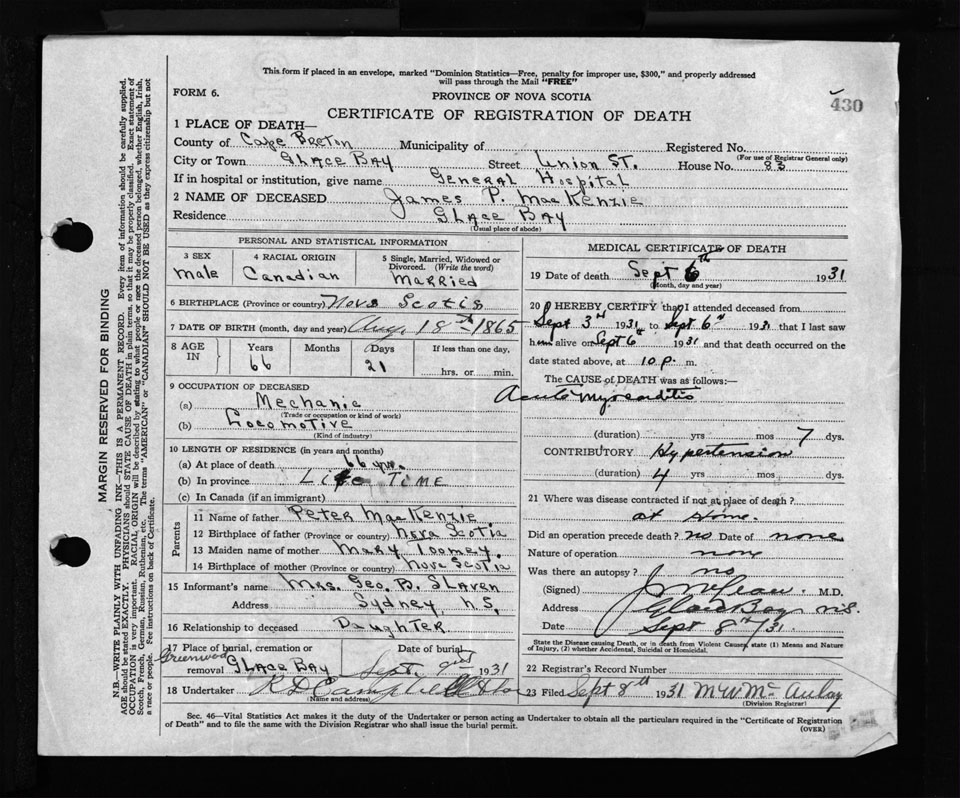 This form if placed in an envelope, marked "Dominion Statistics—Free, penalty for improper use, $300," and properly addressed
will pass through the Mail "FREE"
FORM 6.
PROVINCE OF NOVA SCOTIA
430
CERTIFICATE OF REGISTRATION OF DEATH
1 PLACE OF DEATH—
County of Cape Breton Municipality of Registered No.
(For use of Registrar General only)
City or Town Glace Bay Street Union St. House No. 83
If in hospital or institution, give name General Hospital
2 NAME OF DECEASED James P. MacKenzie
Residence Glace Bay
(Usual place of abode)
PERSONAL AND STATISTICAL INFORMATION
3 SEX male
4 RACIAL ORIGIN Canadian
5 Single, Married, Widowed or Divorced. (Write the word) Married
6 BIRTHPLACE (Province or country) Nova Scotia
7 DATE OF BIRTH (month, day and year) Aug 18th 1865
8 AGE IN Years 66 Months Days 21 If less than one day, hrs. or min.
9 OCCUPATION OF DECEASED
(a) Mechanic
(Trade or occupation or kind of work)
(b) Locomotive
(Kind of industry)
10 LENGTH OF RESIDENCE (in years and months)
(a) At place of death 66 yrs.
(b) In province Life Time
(c) In Canada (if an immigrant)
Parents
11 Name of father Peter MacKenzie
12 Birthplace of father (Province or country) Nova Scotia
13 Maiden name of mother Mary Toomey.
14 Birthplace of mother (Province or country) Nova Scotia
15 Informant's name Mrs. Geo. B. Slaven
Address Sydney N.S.
16 Relationship to deceased Daughter
17 Place of burial, cremation or removal Greenwood Glace Bay
Date of burial Sept. 9th 1931
18 Undertaker R D Campbell
(Name and address)
MEDICAL CERTIFICATE OF DEATH
19 Date of death Sept 6th 1931
(Month, day and year)
20 I HEREBY CERTIFY that I attended deceased from
Sept 3rd 1931 to Sept 6th 1931 that I last saw
him alive on Sept 6th 1931 and that death occurred on the
date stated above, at 10 p. m.
The CAUSE of DEATH was as follows:—
Acute Myocarditis
(duration) yrs mos 7 dys.
CONTRIBUTORY Hypertension
(duration) 4 yrs mos dys.
21 Where was disease contracted if not at place of death?
at Home.
Did an operation precede death? no Date of none
Nature of operation none
Was there an autopsy? no
(Signed) M.D.
Address Glace Bay N.S.
Date Sept 8th/31
State the Disease causing Death, or in death from Violent Causes, state (1) Means and Nature of Injury, (2) whether Accidental, Suicidal or Homicidal.
22 Registrar's Record Number
23 Filed Sept 8th 1931 M W McAulay
(Division Registrar)
Sec. 46—Vital Statistics Act makes it the duty of the Undertaker or person acting as Undertaker to obtain all the particulars required in the "Certificate of Registration
of Death" and to file the same with the Division Registrar who shall issue the burial permit.
(OVER)
MARGIN RESERVED FOR BINDING
N.B.—WRITE PLAINLY WITH UNFADING INK—THIS IS A PERMANENT RECORD. Every item of information should be carefully supplied.
AGE should be stated EXACTLY. PHYSICIANS should STATE CAUSE OF DEATH in plain terms, so that it may be properly classified. Exact statement of
OCCUPATION is very important. RACIAL ORIGIN will be described by stating to what people or race the deceased person belonged, whether English, Irish,
Scotch, French, German, Russian, Ruthenian, etc. The terms "AMERICAN" or "CANADIAN" SHOULD NOT BE USED as they express citizenship but not
a race or people. See instructions on back of Certificate.